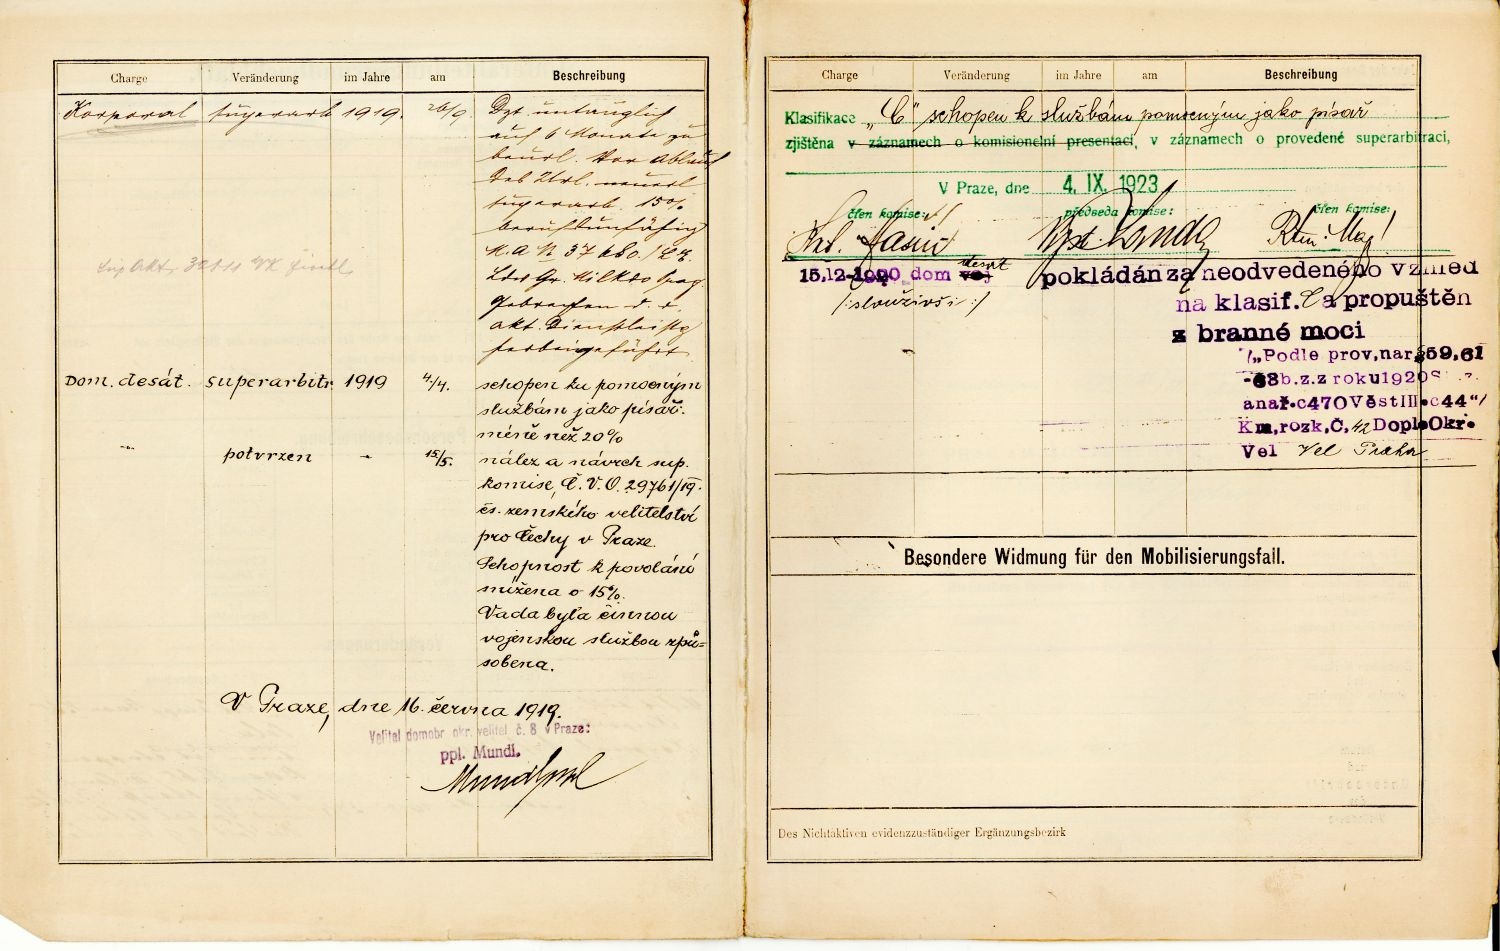 Charge Veränderung im Jahre am Beschreibung
Korporal superarb 1919. 26/9. Dzt. untauglich
auf 6 Monate zu
beurl. Vor Ablauf
des Url. neuerl
superarb. 15%
berufsunfähig
M.A.N 37680/
akt. Dienstleistg
herbeigeführt.
Dom. desát. superarbitr. 1919 4./4. schopen ku pomocným
službám jako písař.
méně než 20%
-"- potvrzen - 15/5. nález a návrh sup.
komise, Č.V.O. 29761/19.
čs. zemského velitelství
pro Čechy v Praze.
Schopnost k povolání
snížena o 15%.
Vada byla činnou
vojenskou službou způ=
sobena.
V Praze, dne 16. června 1919.
Velitel domobr okr. velitel č. 8 v Praze:
ppl. Mundl.
Mundl ppl
Charge Veränderung im Jahre am Beschreibung
Klasifikace „C“ schopen k službám pomocným jako písař
zjištěna v záznamech o komisionelní presentaci, v záznamech o provedené superarbitraci,
V Praze, dne 4. IX. 1923
člen komise: předseda komise: člen komise:
15.12-1920 dom voj desát pokládán za neodvedeného vzhled
/:slouživší:/ na klasif. C a propuštěn
z branné moci
/„Podle prov,nar,§59,61
-68b.z.z roku1920S
anař.c470VěstIII.c44"/
Km,rozk,Č,42Dopl.Okr.
Vel Vel Praha
Besondere Widmung für den Mobilisierungsfall.
Des Nichtaktiven evidenzzuständiger Ergänzungsbezirk